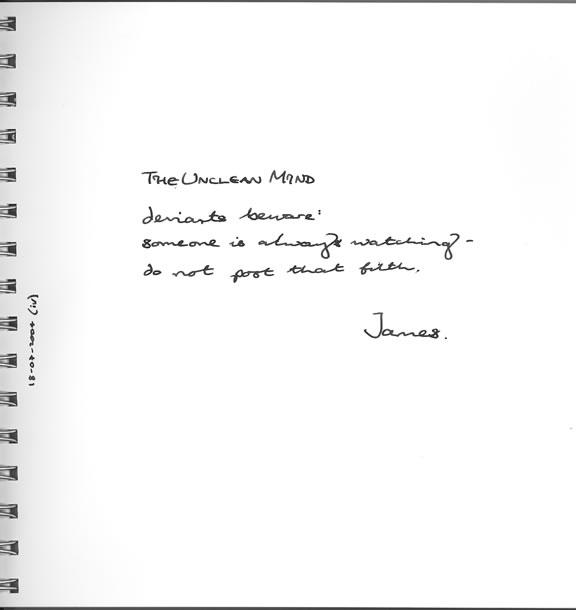 THE UNCLEAN MIND
deviants beware:
someone is always watching -
do not post that filth.
James.
18-07-2004 (iv)